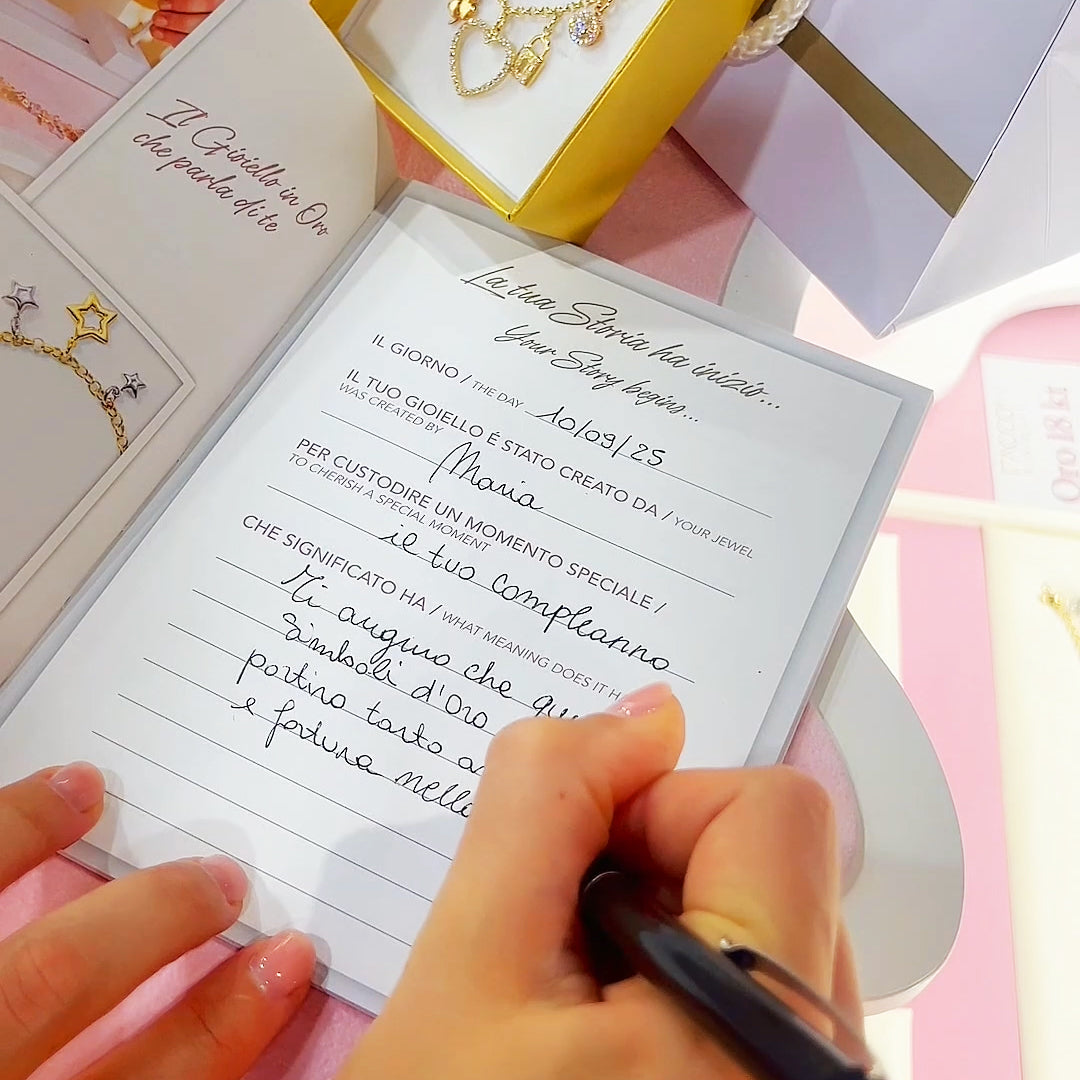 Il Gioiello in Oro
che parla di te
La tua Storia ha inizio...
Your Story begins...
IL GIORNO / THE DAY 10/09/25
IL TUO GIOIELLO É STATO CREATO DA / YOUR JEWEL
WAS CREATED BY
Maria
PER CUSTODIRE UN MOMENTO SPECIALE /
TO CHERISH A SPECIAL MOMENT
il tuo compleanno
CHE SIGNIFICATO HA / WHAT MEANING DOES IT
Ti auguro che
Simboli d'Oro
portino tanto
e fortuna nella
Oro 18 kt